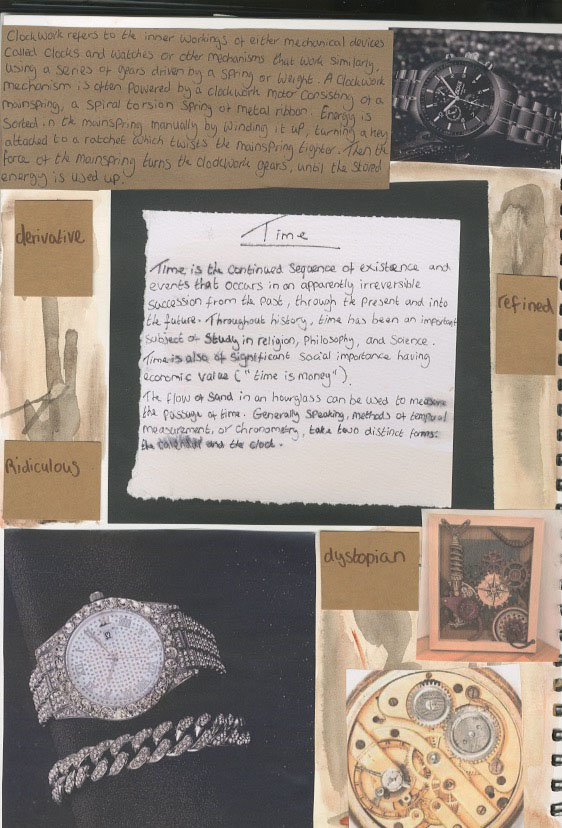 Clockwork refers to the inner workings of either mechanical devices
called clocks and watches or other mechanisms that work similarly,
using a series of gears driven by a spring or weight. A clockwork
mechanism is often powered by a clockwork motor consisting of a
mainspring, a spiral torsion spring of metal ribbon. Energy is
sorted in the mainspring manually by winding it up, turning a key
attached to a ratchet which twists the mainspring tighter. Then the
force of the mainspring turns the clockwork gears, until the stored
energy is used up.
derivative
Time
Time is the continued sequence of existence and
events that occurs in an apparently irreversible
succession from the past, through the present and into
the future. Throughout history, time has been an important
subject of study in religion, Philosophy, and Science.
Time is also of significant social importance having
economic value ("time is money").
The flow of sand in an hourglass can be used to measure
the passage of time. Generally speaking, methods of temporal
measurement, or chronometry, take two distinct forms:
the calendar and the clock.
refined
Ridiculous
dystopian